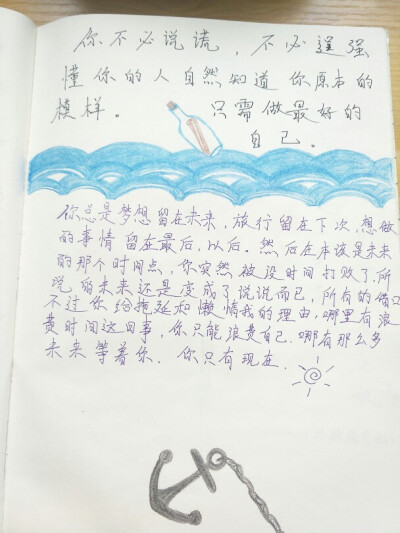 你不必说谎，不必逞强
懂你的人自然知道你原本的
模样。只需做最好的
自己。
你总是梦想留在未来，旅行留在下次，想做
的事情留在最后，以后．然后在本该是未来
的那个时间点，你突然被没时间打败了，所
说的未来还是变成了说说而已，所有的借口
不过你给拖延和懒惰我的理由，哪里有浪
费时间这回事，你只能浪费自己．哪有那么多
未来等着你．你只有现在．